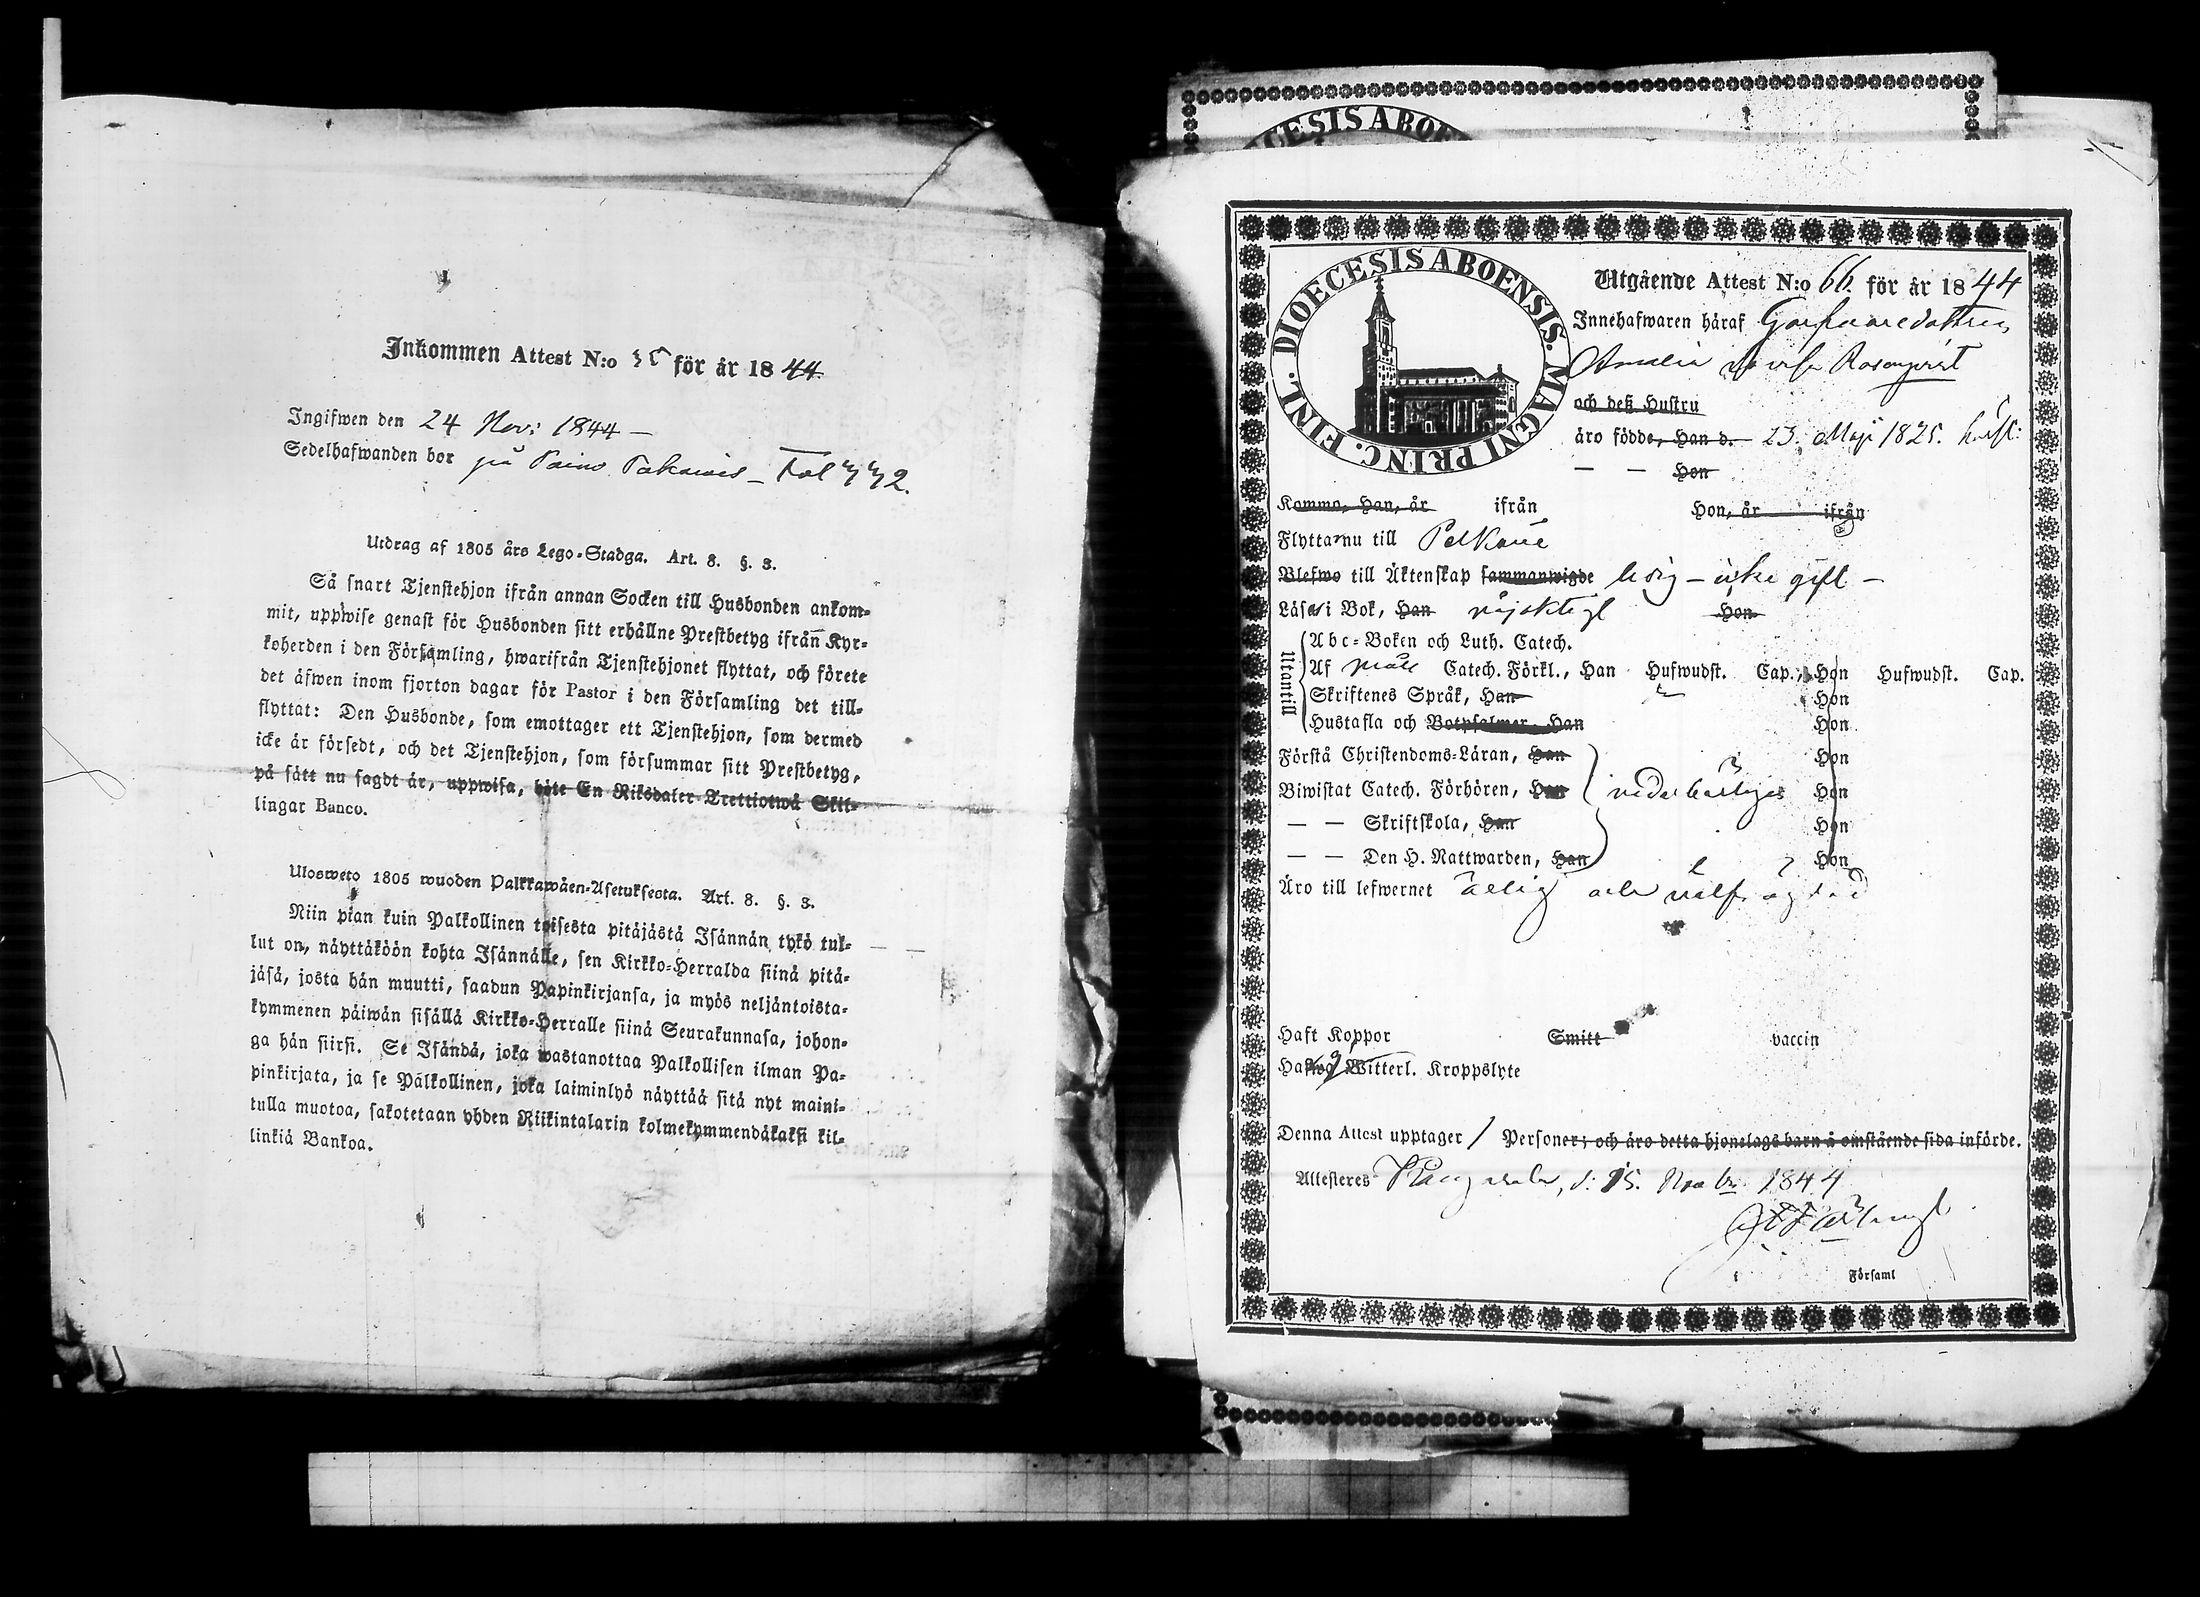 Inkommen Attest N:o för år 1844.
Ingifwen den 24 Nov: 1844 —
Sedelhafwanden bor på
Utdrag af 1805 års Lego-Stadga. Art. 8. §. 3.
Så snart Tjenstehjon ifrån annan Socken till Husbonden ankom-
mit, uppwise genast för Husbonden sitt erhållne Prestbetyg ifrån Kyr-
koherden i den Församling, hwarifrån Tjenstehjonet flyttat, och förete
det äfwen inom fjorton dagar för Pastor i den Församling det till-
flyttat: Den Husbonde, som emottager ett Tjenstehjon, som dermed
icke är försedt, och det Tjenstehjon, som försummar sitt Prestbetyg,
på sätt nu sagdt är, uppwisa, böte En Riksdaler Trettiotwå Skil-
lingar Banco.
Ulosweto 1805 wuoden Palkkawäen-Asetuksesta. Art. 8. §. 3.
Niin pian kuin Palkollinen toisesta pitäjästä Isännän tykö tul-
lut on, näyttäköön kohta Isännälle, sen Kirkko-Herralda siinä pitä-
jäsä, josta hän muutti, saadun Papinkirjansa, ja myös neljäntoista-
kymmenen päiwän sisällä Kirkko-Herralle siinä Seurakunnasa, johon-
ga hän siirsi. Se Isändä, joka wastanottaa Palkollisen ilman Pa-
pinkirjata, ja se Palkollinen, joka laiminlyö näyttää sitä nyt maini-
tulla muotoa, sakotetaan yhden Riikintalarin kolmekymmendäkaksi kil-
linkiä Bankoa.
DIOECESIS ABOENSIS. MAGNI PRINC. FINL.
Utgående Attest N:o 66. för år 1844
Innehafwaren häraf
Amalia Rosenqvist
och deß Hustru
äro födde, Han d. 23. Maji 1825.
— — Hon
Komma, Han, år ifrån Hon, år ifrån
Flytta nu till Pelkäne
Blefwo till Äktenskap sammanwigde ledig — icke gift —
Läsa i Bok, Han Hon
Utantill
Abc-Boken och Luth. Catech.
Af Catech. Förkl., Han Hufwudst. Cap., Hon Hufwudst. Cap.
Skriftenes Språk, Han Hon
Hustafla och Botpsalmer, Han Hon
Förstå Christendoms-Läran, Han Hon
Biwistat Catech. Förhören, Han Hon
— — Skriftskola, Han Hon
— — Den H. Nattwarden, Han Hon
Äro till lefwernet ärlig och
Haft Koppor Smitt vaccin
Witterl. Kroppslyte
Denna Attest upptager 1 Personer; och äro detta hjonelags barn å omstående sida införde.
Attesteres Kangasala, d. 15. Novbr 1844
Församl